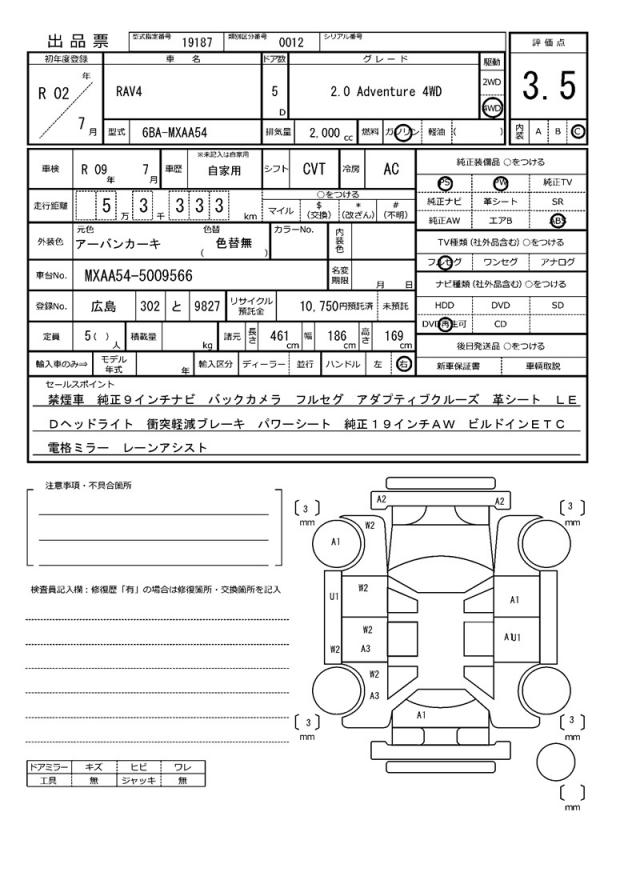 出品票 型式指定番号 19187 類別区分番号 0012 シリアル番号
評価点
3.5
内装 A B C
初年度登録 車名 ドア数 グレード 駆動
R 02 年 7 月
RAV4 5 D 2.0 Adventure 4WD
2WD
4WD
型式 6BA-MXAA54 排気量 2,000 cc 燃料 ガソリン 軽油 ( )
車検 R 09 年 7 月 車歴 ※未記入は自家用 自家用 シフト CVT 冷房 AC
走行距離 5 万 3 千 3 3 3 km
○をつける
マイル $(交換) *(改ざん) #(不明)
外装色 元色 アーバンカーキ 色替 ( 色替無 ) カラーNo. 内装色
車台No. MXAA54-5009566 名変期限 月 日
登録No. 広島 302 と 9827 リサイクル預託金 10,750円預託済 未預託
定員 5( ) 人 積載量 kg 諸元 長さ 461 cm 幅 186 cm 高さ 169 cm
輸入車のみ⇒ モデル年式 年 輸入区分 ディーラー 並行 ハンドル 左 右
純正装備品 ○をつける
PS PW 純正TV
純正ナビ 革シート SR
純正AW エアB ABS
TV種類(社外品含む)○をつける
フルセグ ワンセグ アナログ
ナビ種類(社外品含む)○をつける
HDD DVD SD
DVD再生可 CD
後日発送品 ○をつける
新車保証書 車輌取説
セールスポイント
禁煙車 純正9インチナビ バックカメラ フルセグ アダプティブクルーズ 革シート LE
Dヘッドライト 衝突軽減ブレーキ パワーシート 純正19インチAW ビルドインETC
電格ミラー レーンアシスト
注意事項・不具合箇所
検査員記入欄:修復歴「有」の場合は修復箇所・交換箇所を記入
ドアミラー キズ ヒビ ワレ
工具 無 ジャッキ 無
A2 A2
[ 3 ] mm [ 3 ] mm
W2
A1
U1 W2 A1
W2 A1U1
W2 A3
W2
A3
A1
[ 3 ] mm [ 3 ] mm
[ ] mm